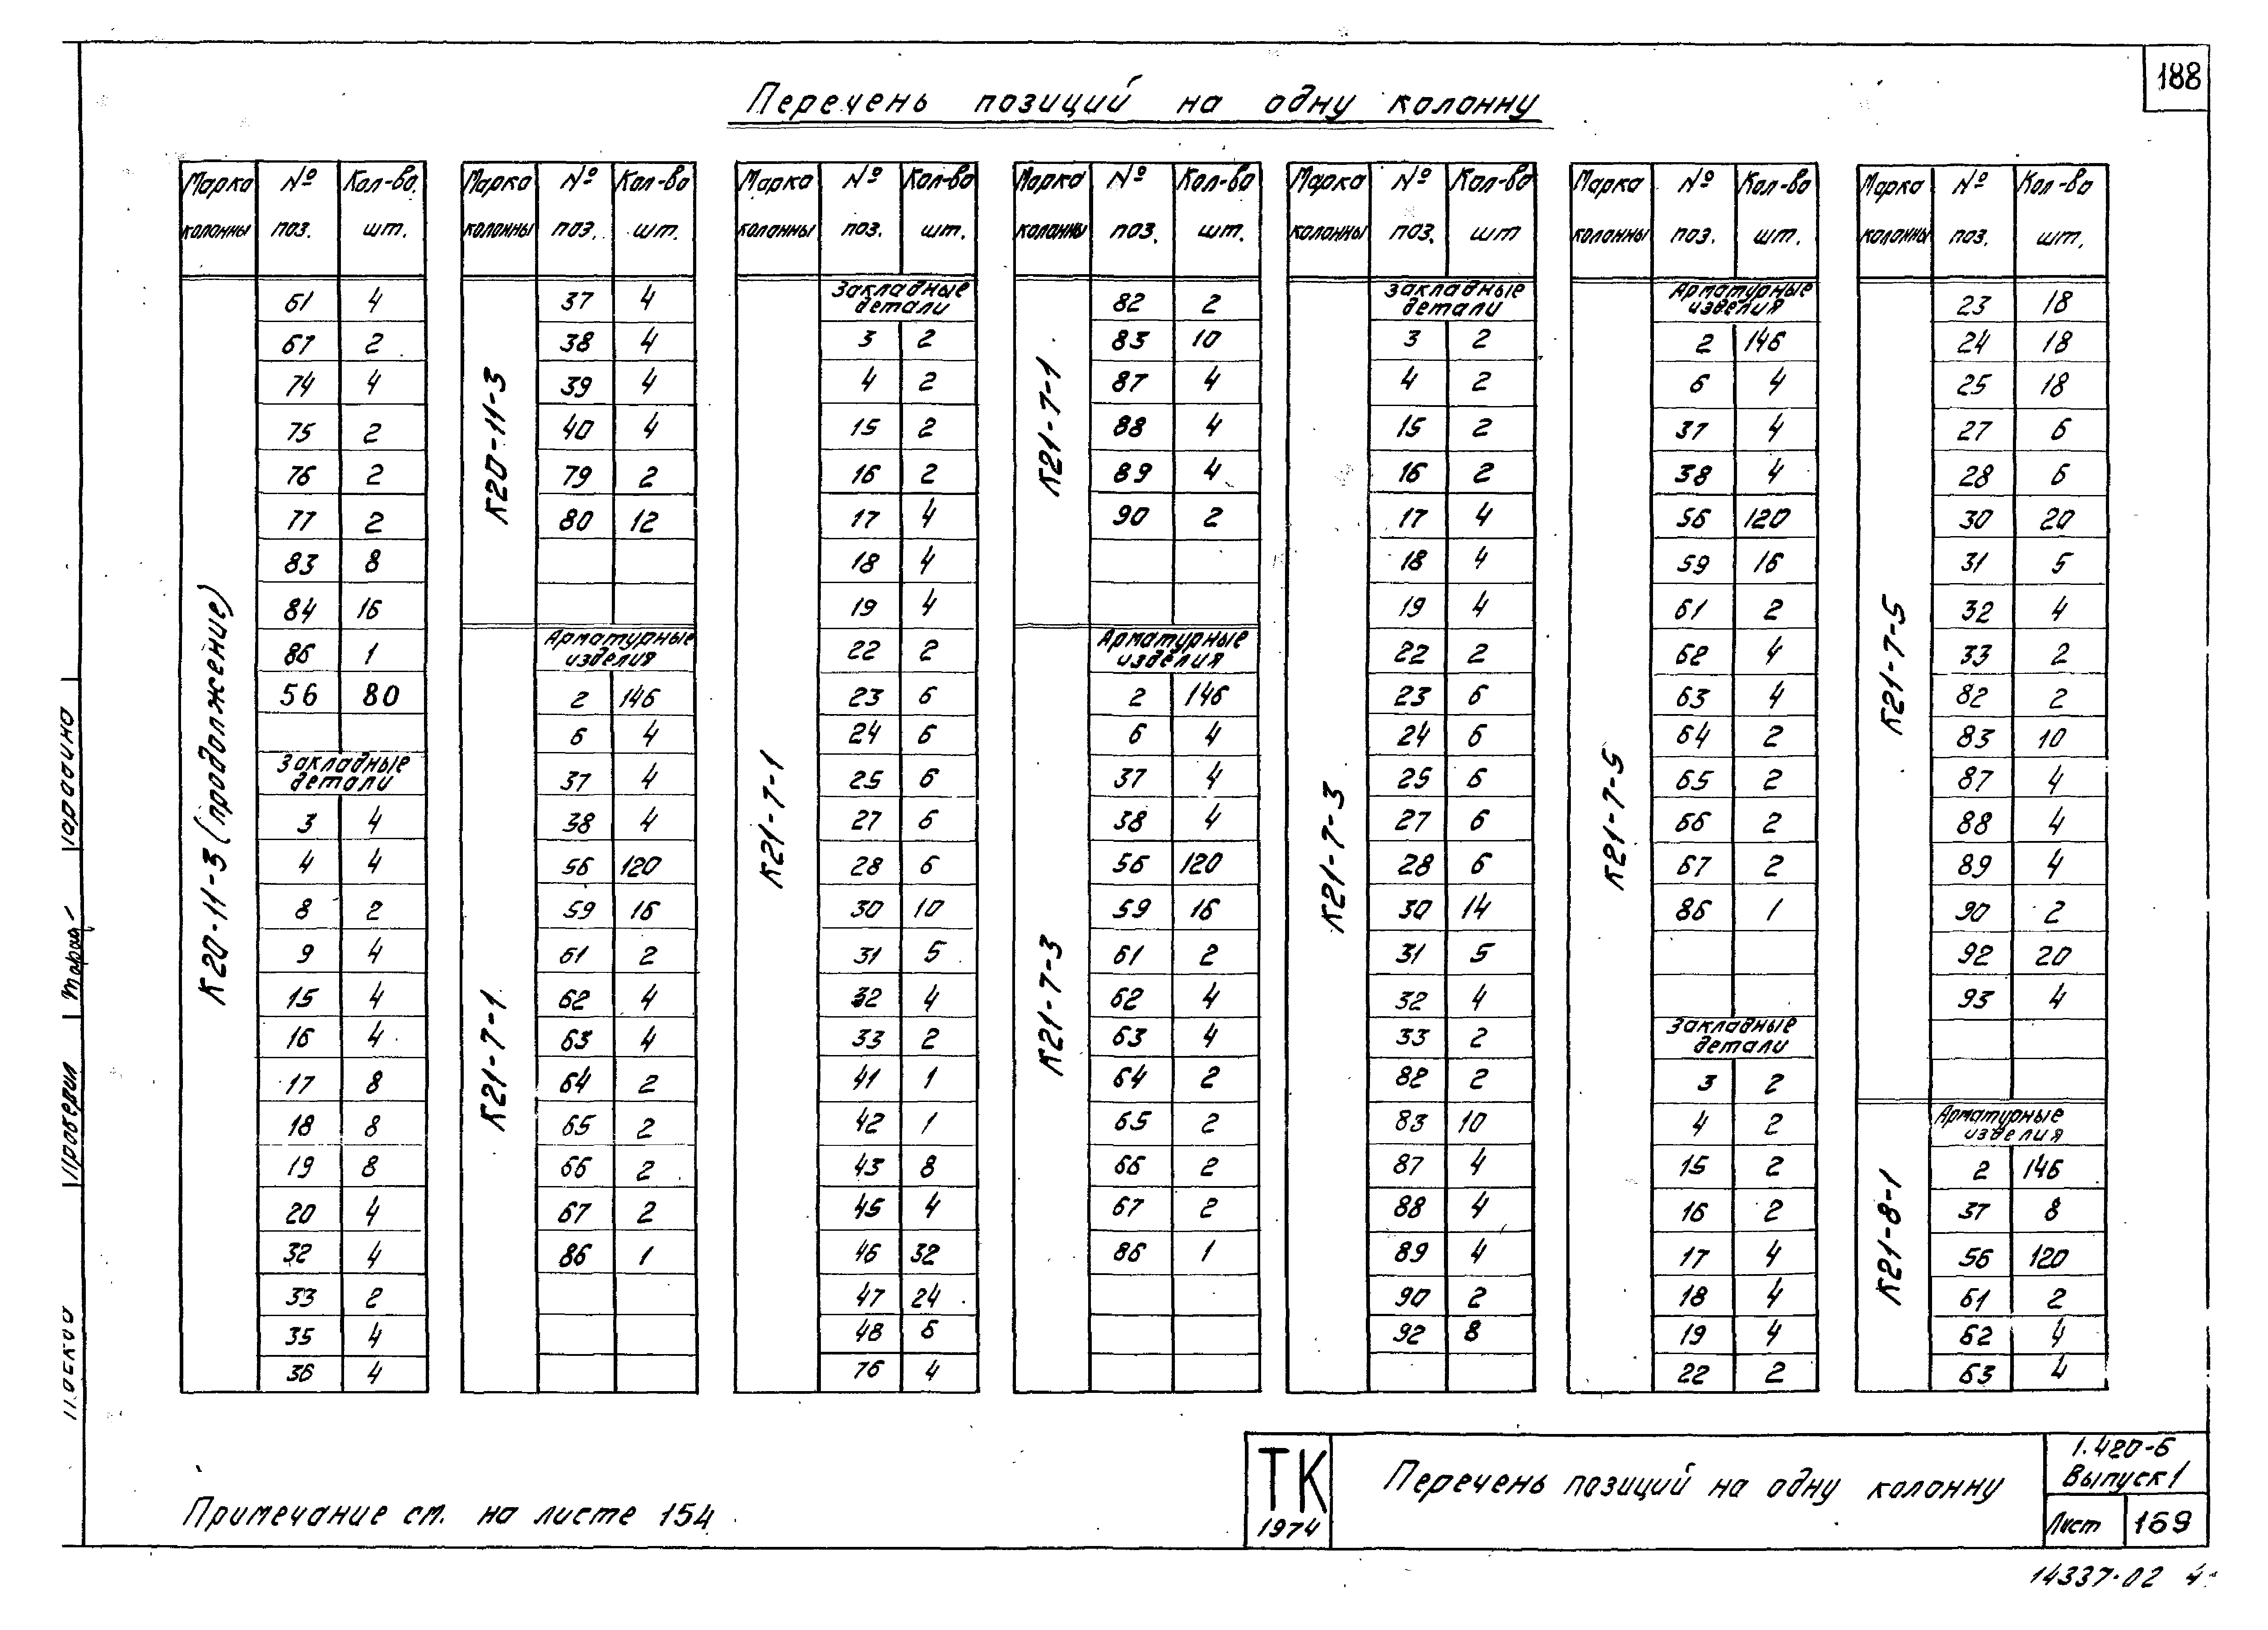 188
Перечень позиций на одну колонну
Марка колонны № поз. Кол-во шт.
К20-11-3 (продолжение)
61 4
67 2
74 4
75 2
76 2
77 2
83 8
84 16
86 1
56 80
Закладные детали
3 4
4 4
8 2
9 4
15 4
16 4
17 8
18 8
19 8
20 4
32 4
33 2
35 4
36 4
Марка колонны № поз. Кол-во шт.
К20-11-3
37 4
38 4
39 4
40 4
79 2
80 12
К21-7-1
Арматурные изделия
2 146
6 4
37 4
38 4
56 120
59 16
61 2
62 4
63 4
64 2
65 2
66 2
67 2
86 1
Марка колонны № поз. Кол-во шт.
К21-7-1
Закладные детали
3 2
4 2
15 2
16 2
17 4
18 4
19 4
22 2
23 6
24 6
25 6
27 6
28 6
30 10
31 5
32 4
33 2
41 1
42 1
43 8
45 4
46 32
47 24
48 6
76 4
Марка колонны № поз. Кол-во шт.
К21-7-1
82 2
83 10
87 4
88 4
89 4
90 2
К21-7-3
Арматурные изделия
2 146
6 4
37 4
38 4
56 120
59 16
61 2
62 4
63 4
64 2
65 2
66 2
67 2
86 1
Марка колонны № поз. Кол-во шт
К21-7-3
Закладные детали
3 2
4 2
15 2
16 2
17 4
18 4
19 4
22 2
23 6
24 6
25 6
27 6
28 6
30 14
31 5
32 4
33 2
82 2
83 10
87 4
88 4
89 4
90 2
92 8
Марка колонны № поз. Кол-во шт.
К21-7-5
Арматурные изделия
2 146
6 4
37 4
38 4
56 120
59 16
61 2
62 4
63 4
64 2
65 2
66 2
67 2
86 1
Закладные детали
3 2
4 2
15 2
16 2
17 4
18 4
19 4
22 2
Марка колонны № поз. Кол-во шт.
К21-7-5
23 18
24 18
25 18
27 6
28 6
30 20
31 5
32 4
33 2
82 2
83 10
87 4
88 4
89 4
90 2
92 20
93 4
К21-8-1
Арматурные изделия
2 146
37 8
56 120
61 2
62 4
63 4
Проверил
Примечание см. на листе 154
ТК
1974
Перечень позиций на одну колонну
1.420-6
Выпуск 1
Лист 169
14337-02 4